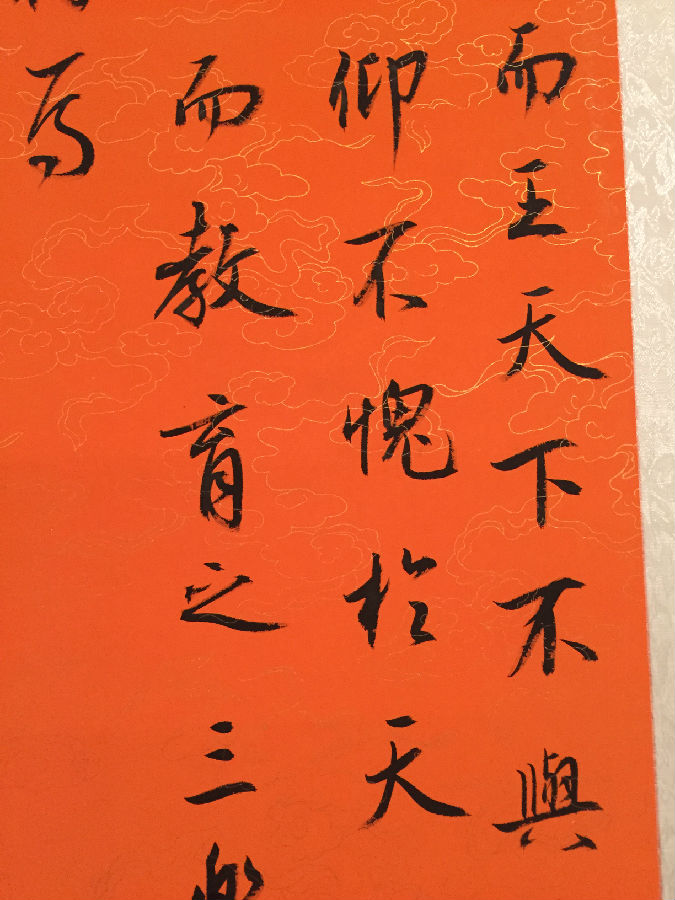 而王天下不與
仰不愧於天
而教育之三樂
焉